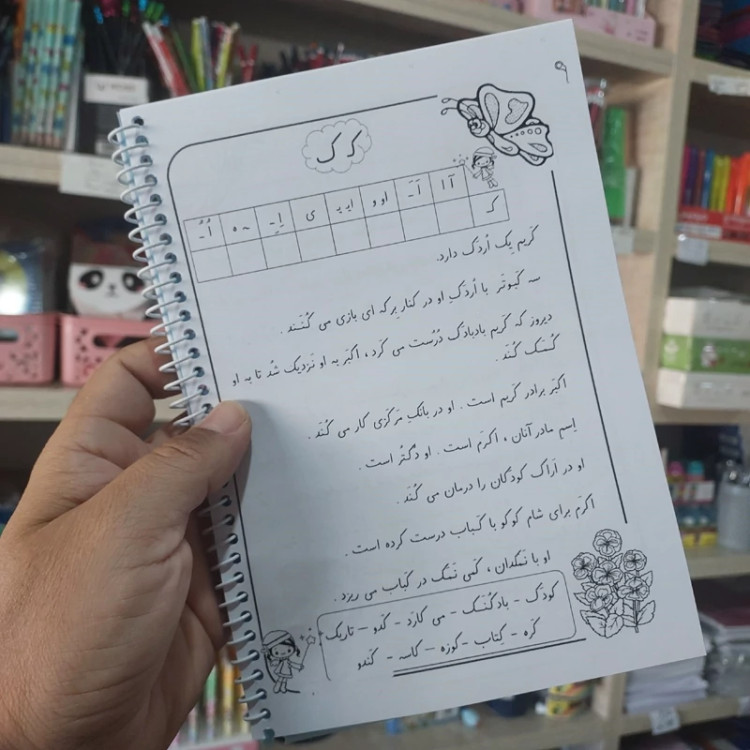 ۹
کـ ک
آ ا اَ ـَ او و ایـ یـ ی اِ ـِ ـه ه اُ ـُ
کـ
کَریم یِک اُردَک دارَد.
سه کَبوتَر با اُردَکِ او در کنار بِرکه ای بازی می کُنَند .
دیروز که کَریم بادبادَک دُرُست می کَرد ، اکبَر به او نَزدیک شُد تا به او
کُمَک کُنَد .
اکبَر برادر کَریم است . او در بانکِ مَرکَزی کار می کُنَد .
اِسم مادر آنان ، اَکرَم است . او دُکتُر است .
او در اَراک کودَکان را درمان می کُنَد .
اکرَم برای شام کوکو با کَباب درست کرده است .
او با نَمَکدان ، کَمی نَمَک در کَباب می ریزد .
کودَک - بادکُنَک - می کارَد - کَدو - تاریک
کَره - کِتاب - کوزه - کاسه - کَندو